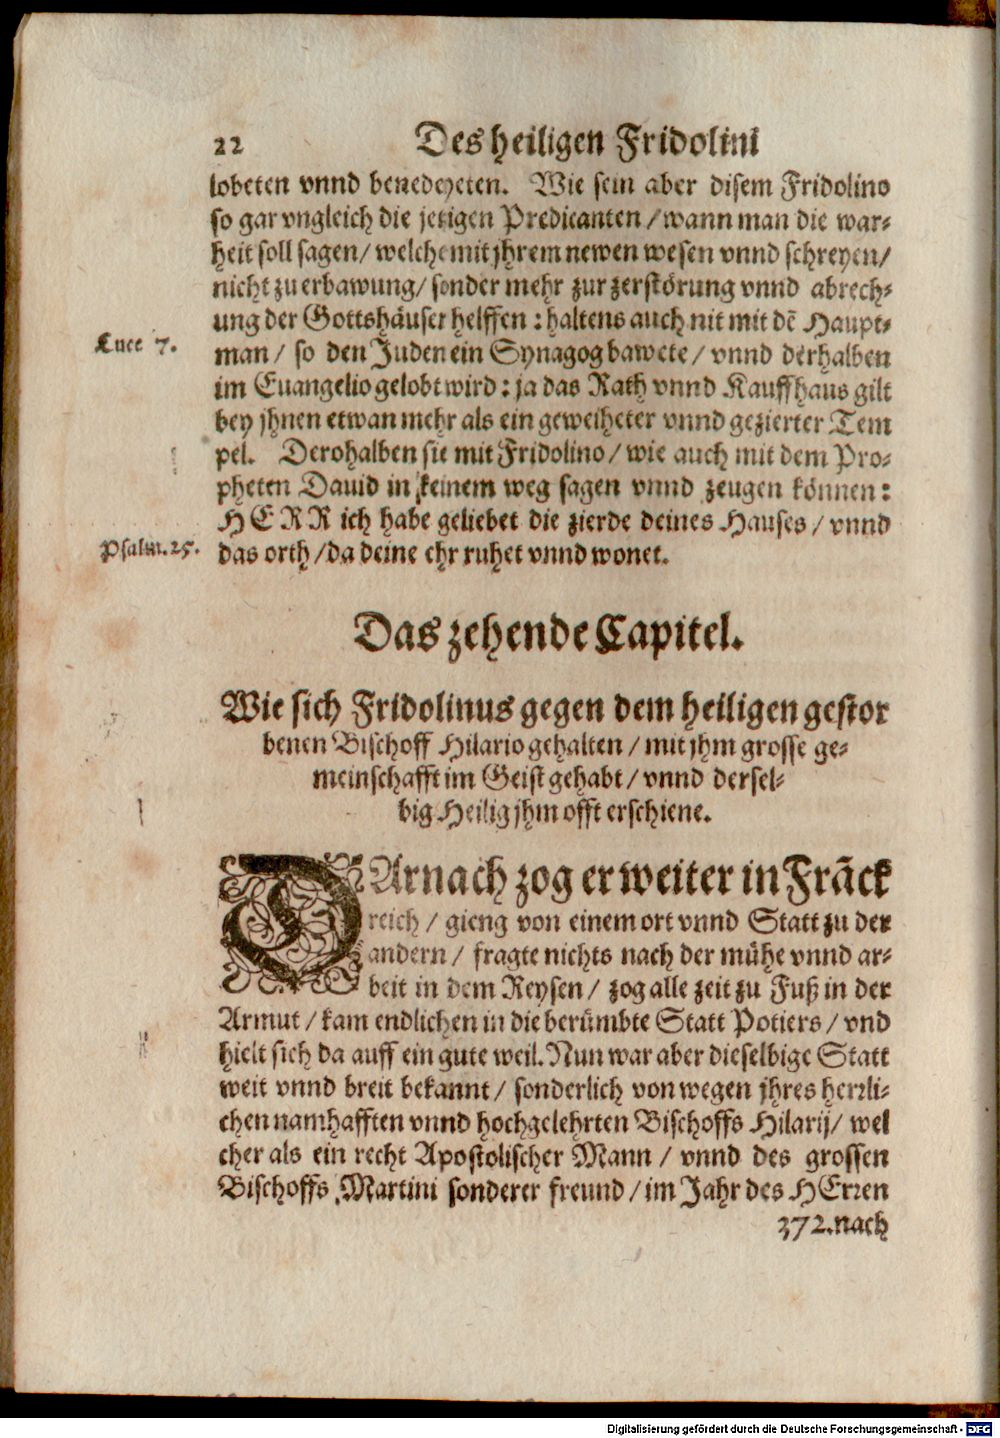 22 Des heiligen Fridolini
lobeten vnnd benedeyeten. Wie sein aber disem Fridolino
so gar vngleich die jetzigen Predicanten / wann man die war-
heit soll sagen / welche mit jhrem newen wesen vnnd schreyen /
nicht zu erbawung / sonder mehr zur zerstörung vnnd abrech-
ung der Gottshäuser helffen : haltens auch nit mit dẽ Haupt-
Luce 7.
man / so den Juden ein Synagog bawete / vnnd derhalben
im Euangelio gelobt wird : ja das Rath vnnd Kauffhaus gilt
bey jhnen etwan mehr als ein geweiheter vnnd gezierter Tem
pel. Derohalben sie mit Fridolino / wie auch mit dem Pro-
pheten Dauid in keinem weg sagen vnnd zeugen können :
HERR ich habe geliebet die zierde deines Hauses / vnnd
Psalm. 25.
das orth / da deine ehr ruhet vnnd wonet.
Das zehende Capitel.
Wie sich Fridolinus gegen dem heiligen gestor
benen Bischoff Hilario gehalten / mit jhm grosse ge-
meinschafft im Geist gehabt / vnnd dersel-
big Heilig jhm offt erschiene.
DArnach zog er weiter in Frãck
reich / gieng von einem ort vnnd Statt zu der
andern / fragte nichts nach der mühe vnnd ar-
beit in dem Reysen / zog alle zeit zu Fuß in der
Armut / kam endlichen in die berümbte Statt Potiers / vnd
hielt sich da auff ein gute weil. Nun war aber dieselbige Statt
weit vnnd breit bekannt / sonderlich von wegen jhres herrli-
chen namhafften vnnd hochgelehrten Bischoffs Hilarij / wel
cher als ein recht Apostolischer Mann / vnnd des grossen
Bischoffs Martini sonderer freund / im Jahr des HErren
372. nach
Digitalisierung gefördert durch die Deutsche Forschungsgemeinschaft - DFG